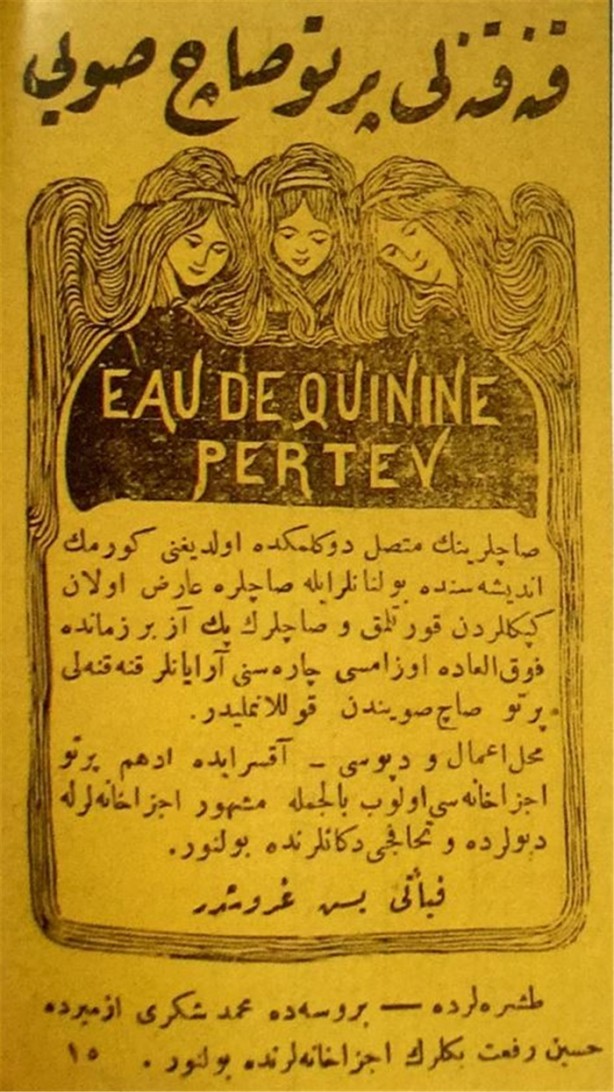 قنه‌قنه‌لی پرتو صاچ صویی
EAU DE QUININE
PERTEV
صاچلرینك متصل دوكلمكده اولدیغنی كورمك
اندیشه‌سنده بولنانلرایله صاچلره عارض اولان
كپكلردن قورتلمق و صاچلرك پك آز بر زمانده
فوق‌العاده اوزامسی چاره‌سنی آرایانلر قنه‌قنه‌لی
پرتو صاچ صویندن قوللانملیدر.
محل اعمال و دپوسی – آقسرایده ادهم پرتو
اجزاخانه‌سی اولوب بالجمله مشهور اجزاخانه‌لرله
دپولرده و تحافجی دكانلرنده بولنور.
فیأتی بش غروشدر
طشره‌لرده — بروسه‌ده محمد شكری ازمیرده
حسین رفعت بكلرك اجزاخانه‌لرنده بولنور . ١٥